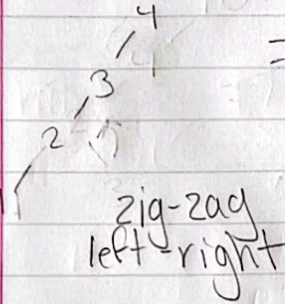 4
3
2
1
zig-zag
left-right